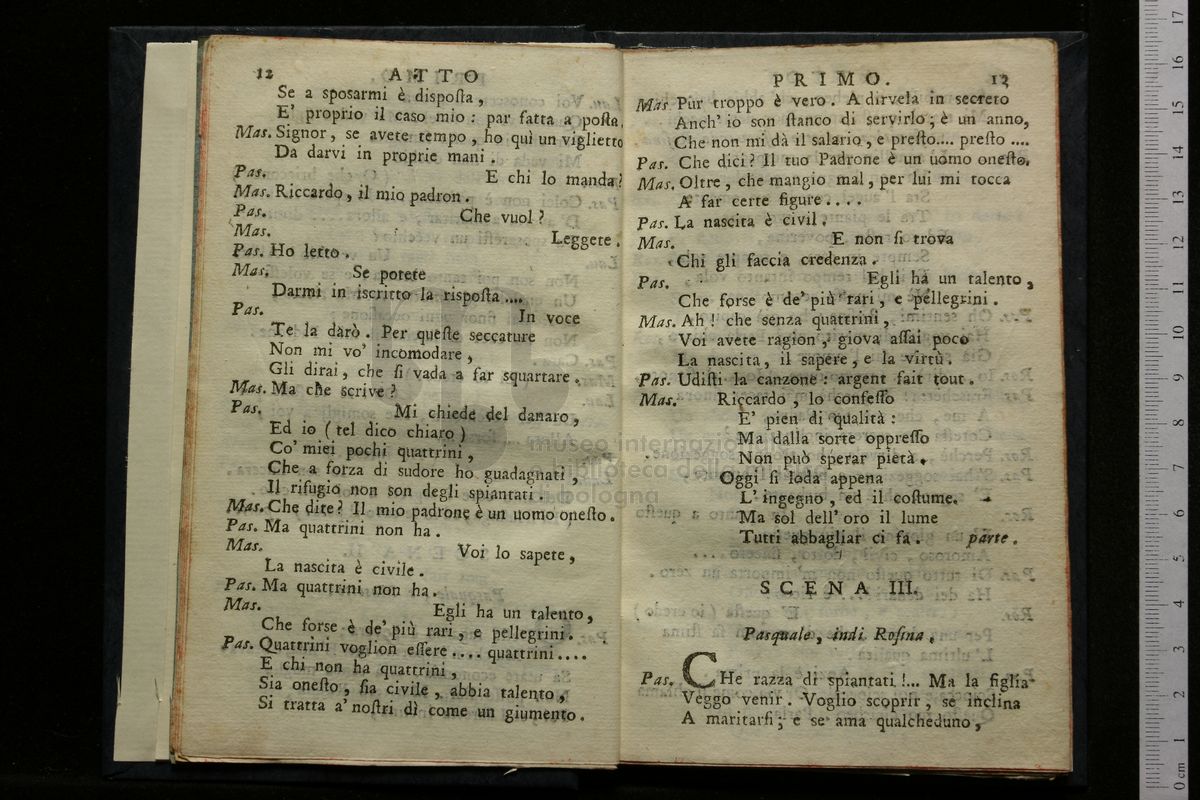 12 ATTO
Se a sposarmi è disposta,
E' proprio il caso mio: par fatta a posta.
Mas. Signor, se avete tempo, ho quì un viglietto
Da darvi in proprie mani.
Pas. E chi lo manda?
Mas. Riccardo, il mio padron.
Pas. Che vuol?
Mas. Leggete.
Pas. Ho letto.
Mas. Se potete
Darmi in iscritto la risposta ....
Pas. In voce
Te la darò. Per queste seccature
Non mi vo' incomodare,
Gli dirai, che si vada a far squartare.
Mas. Ma che scrive?
Pas. Mi chiede del danaro,
Ed io (tel dico chiaro)
Co' miei pochi quattrini,
Che a forza di sudore ho guadagnati,
Il rifugio non son degli spiantati.
Mas. Che dite? Il mio padrone è un uomo onesto.
Pas. Ma quattrini non ha.
Mas. Voi lo sapete,
La nascita è civile.
Pas. Ma quattrini non ha.
Mas. Egli ha un talento,
Che forse è de' più rari, e pellegrini.
Pas. Quattrini voglion essere .... quattrini ....
E chi non ha quattrini,
Sia onesto, sia civile, abbia talento,
Si tratta a' nostri dì come un giumento.
PRIMO. 13
Mas Pur troppo è vero. A dirvela in secreto
Anch' io son stanco di servirlo; è un anno,
Che non mi dà il salario, e presto.... presto ....
Pas. Che dici? Il tuo Padrone è un uomo onesto.
Mas. Oltre, che mangio mal, per lui mi tocca
A far certe figure ....
Pas. La nascita è civil.
Mas. E non si trova
Chi gli faccia credenza.
Pas. Egli há un talento,
Che forse è de' più rari, e pellegrini.
Mas. Ah! che senza quattrini,
Voi avete ragion, giova assai poco
La nascita, il sapere, e la virtù.
Pas. Udisti la canzone: argent fait tout.
Mas. Riccardo, lo confesso
E' pien di qualità:
Ma dalla sorte oppresso
Non può sperar pietà.
Oggi si loda appena
L' ingegno, ed il costume.
Ma sol dell' oro il lume
Tutti abbagliar ci fa. parte.
SCENA III.
Pasquale, indi Rosina.
Pas. CHe razza di spiantati!... Ma la figlia
Veggo venir. Voglio scoprir, se inclina
A maritarsi; e se ama qualcheduno,
museo internazionale
biblioteca della
bologna
17
16
15
14
13
12
11
10
9
8
7
6
5
4
3
2
1
0 cm